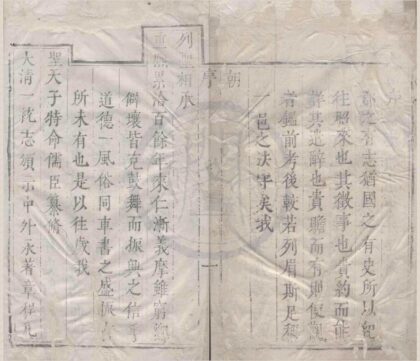 序
郡之有志猶國之有史所以紀
往昭來也其徵事也貴約而能
詳其遣辭也貴贍而有則俾觀
者鑑前考後較若列眉斯足稱
一邑之法守矣我
朝
列聖相承
重熙累洽百餘年來仁漸義摩雖窮鄉
僻壤皆克鼓舞而振興之信乎
道德一風俗同車書之盛振古
所未有也是以往歲我
聖天子特命儒臣纂脩
大清一統志頒示中外永著章程凡